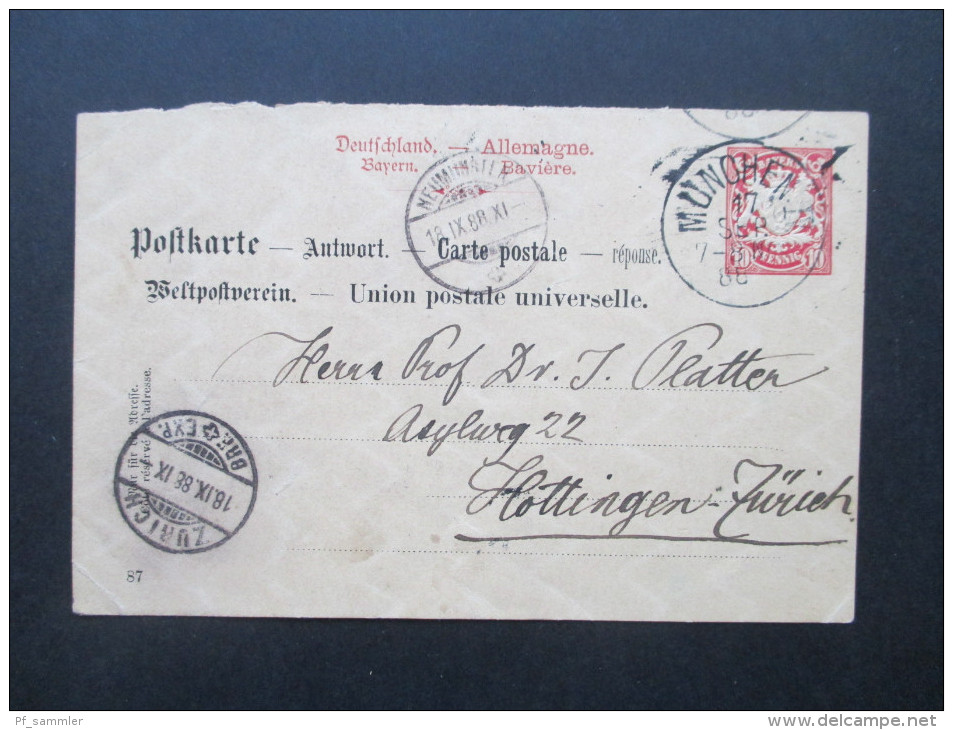 Deutschland. — Allemagne.
Bayern. Bavière.
MÜNCHEN
17
SEP.
7-8
88
PFENNIG
10 10
NEUMÜNSTER
18.IX.88.XI-
Postkarte — Antwort. — Carte postale — réponse.
Weltpostverein. — Union postale universelle.
Herrn Prof Dr. J. Platter
Asylweg 22
Hottingen-Zürich
Nur für die Adresse.
réservé à l'adresse.
BRF. EXP.
18.IX.88.IX
ZÜRICH
87
Pf_sammler
www.delcampe.net